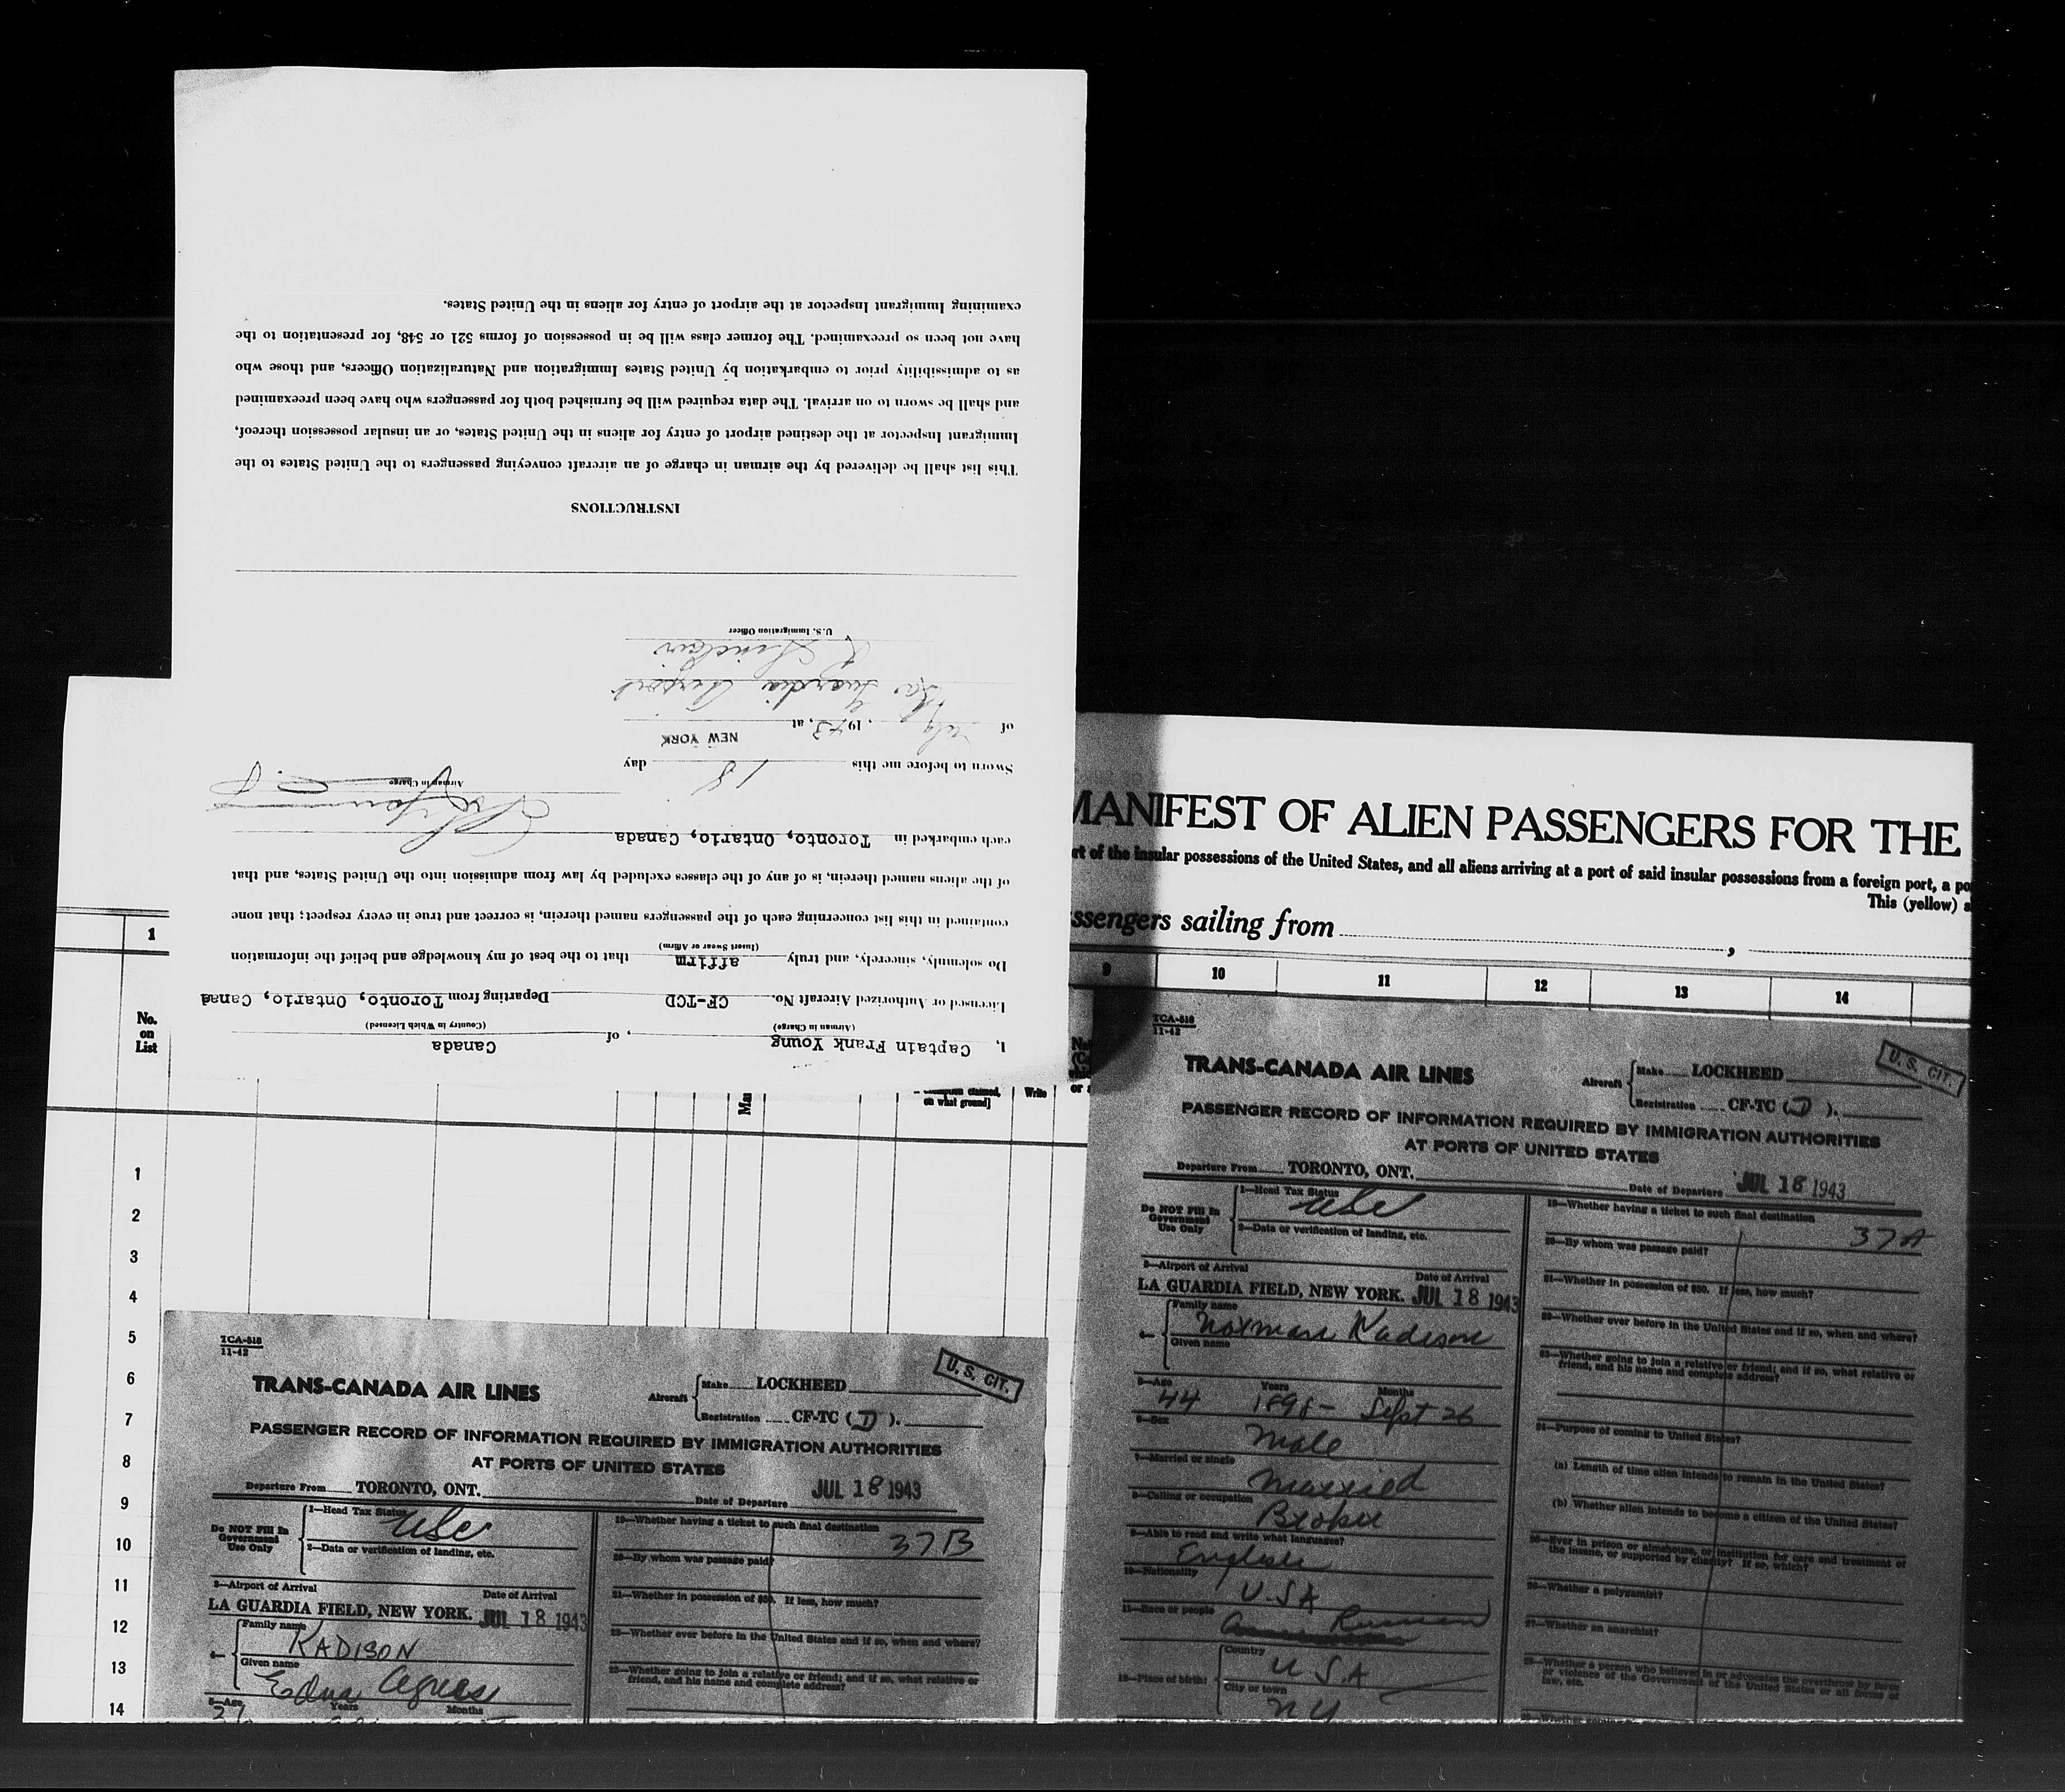 I, Captain Frank Young, of Canada
(Airman in Charge) (Country in Which Licensed)
Licensed or Authorized Aircraft No. CF-TCD Departing from Toronto, Ontario, Canada
Do solemnly, sincerely, and truly affirm that to the best of my knowledge and belief the information
(Insert Swear or Affirm)
contained in this list concerning each of the passengers named therein, is correct and true in every respect; that none
of the aliens named therein, is of any of the classes excluded by law from admission into the United States, and that
each embarked in Toronto, Ontario, Canada
Airman in Charge
Sworn to before me this 18 day
NEW YORK
of July, 1943, at
La Guardia Airport
R Sinclair
U.S. Immigration Officer
INSTRUCTIONS
This list shall be delivered by the airman in charge of an aircraft conveying passengers to the United States to the
Immigrant Inspector at the destined airport of entry for aliens in the United States, or an insular possession thereof,
and shall be sworn to on arrival. The data required will be furnished both for passengers who have been preexamined
as to admissibility prior to embarkation by United States Immigration and Naturalization Officers, and those who
have not been so preexamined. The former class will be in possession of forms 521 or 548, for presentation to the
examining Immigrant Inspector at the airport of entry for aliens in the United States.
MANIFEST OF ALIEN PASSENGERS FOR THE
of the insular possessions of the United States, and all aliens arriving at a port of said insular possessions from a foreign port, a
This (yellow)
sailing from ,
1 9 10 11 12 13 14
No.
on
List
claimed,
on what ground]
Write
1
2
3
4
5
6
7
8
9
10
11
12
13
14
TCA-518
11-42
U. S. CIT.
TRANS-CANADA AIR LINES
Aircraft Make LOCKHEED
Registration CF-TC (D).
PASSENGER RECORD OF INFORMATION REQUIRED BY IMMIGRATION AUTHORITIES
AT PORTS OF UNITED STATES
Departure From TORONTO, ONT. Date of Departure JUL 18 1943
Do NOT Fill In
Government
Use Only
1—Head Tax Status USC
2—Data or verification of landing, etc.
3—Airport of Arrival Date of Arrival
LA GUARDIA FIELD, NEW YORK. JUL 18 1943
4— Family name KADISON
Given name Edna Agnes
5—Age Years Months
27
19—Whether having a ticket to such final destination
37B
20—By whom was passage paid?
21—Whether in possession of $50. If less, how much?
22—Whether ever before in the United States and if so, when and where?
23—Whether going to join a relative or friend; and if so, what relative or
friend, and his name and complete address?
TCA-518
11-42
U. S. CIT.
TRANS-CANADA AIR LINES
Aircraft Make LOCKHEED
Registration CF-TC (D).
PASSENGER RECORD OF INFORMATION REQUIRED BY IMMIGRATION AUTHORITIES
AT PORTS OF UNITED STATES
Departure From TORONTO, ONT. Date of Departure JUL 18 1943
Do NOT Fill In
Government
Use Only
1—Head Tax Status USC
2—Data or verification of landing, etc.
3—Airport of Arrival Date of Arrival
LA GUARDIA FIELD, NEW YORK. JUL 18 1943
4— Family name
Norman Kadison
Given name
5—Age Years Months
44 1898- Sept 26
6—Sex Male
7—Married or single Married
8—Calling or occupation Broker
9—Able to read and write what languages?
English
10—Nationality U.S.A
11—Race or people Russian
12—Place of birth: Country U S A
City or town N Y
19—Whether having a ticket to such final destination
37A
20—By whom was passage paid?
21—Whether in possession of $50. If less, how much?
22—Whether ever before in the United States and if so, when and where?
23—Whether going to join a relative or friend; and if so, what relative or
friend, and his name and complete address?
24—Purpose of coming to United States?
(a) Length of time alien intends to remain in the United States?
(b) Whether alien intends to become a citizen of the United States?
25—Ever in prison or almshouse, or institution for care and treatment of
the insane, or supported by charity? If so, which?
26—Whether a polygamist?
27—Whether an anarchist?
28—Whether a person who believes in or advocates the overthrow by force
or violence of the Government of the United States or all forms of
law, etc.